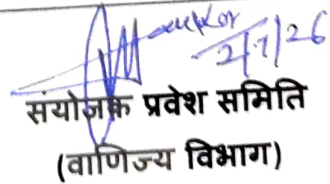 2/7/26
संयोजक प्रवेश समिति
(वाणिज्य विभाग)